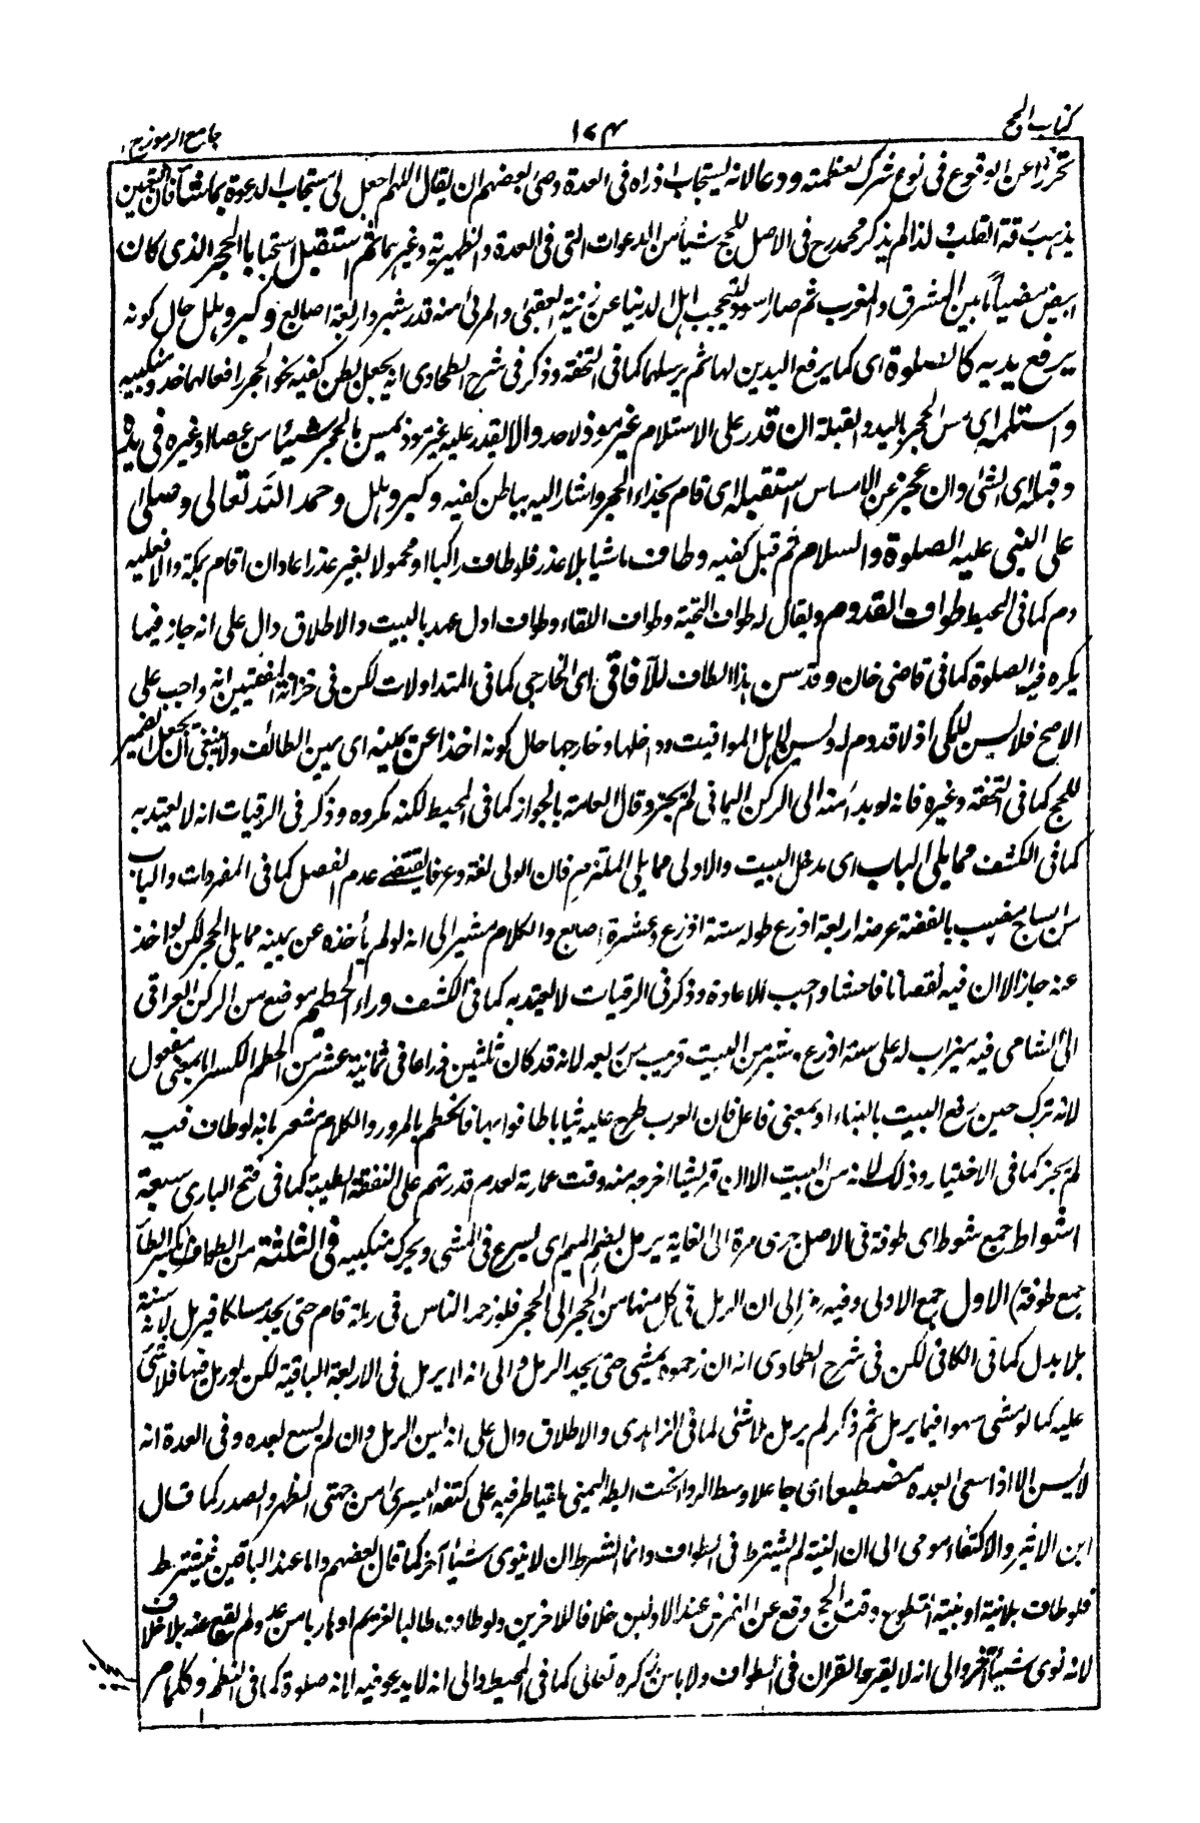 كتاب الحج ١٧٤ جامع الرموز ج ١
تحرزا عن الوقوع فى نوع شرك لعظمته ودعا لانه يستجاب اذ راه فى العدة وصى بعضهم ان يقال اللهم اجعل لى استجاب الدعوة بما شئت فان التعيين
يذهب رقة القلب لذا لم يذكر محمد رح فى الاصل للحج شيأ من الدعوات التى فى العدة والظهيرية وغيرهما ثم استقبل استحبابا الحجر الذى كان
ابيض مضيأ ما بين المشرق والمغرب ثم صار اسود لتحجب اهل الدنيا عن زينة العقبى والمرئى منه قدر شبر واربعة اصابع وكبر وهلل حال كونه
يرفع يديه كالصلوة اى كما يرفع اليدين لها ثم يرسلهما كما فى التحفة وذكر فى شرح الطحاوى انه يجعل بطن كفيه نحو الحجر رافعا لهما حذو منكبيه
واستلمه اى مس الحجر باليد والقبلة ان قدر على الاستلام غير موذ لاحد والا يقدر عليه غير موذ يمس بالحجر شيئا من عصا او غيره فى يده
وقبله اى الشئ وان عجز عن الامساس استقبله اى قام بحذاء الحجر واشار اليه بباطن كفيه وكبر وهلل وحمد الله تعالى وصلى
على النبى عليه الصلوة والسلام ثم قبل كفيه وطاف ماشيا بلا عذر فلو طاف راكبا او محمولا لغير عذر اعاد ان اقام بمكة والا فعليه
دم كما فى المحيط طواف القدوم ويقال له طواف التحية وطواف اللقاء وطواف اول عهد بالبيت والاطلاق دال على انه جاز فيما
يكره فيه الصلوة كما فى قاضى خان وقد سن هذا الطاف للآفاقى اى الخارجى كما فى المتداولات لكن فى خزانة المفتيين انه واجب على
الاصح فلا يسن للمكى اذ لا قدوم له وليس لاهل المواقيت وداخلها وخارجها حال كونه اخذا عن يمينه اى يمين الطائف ولا ينبغى ان يجعل الضمير
للحج كما فى التحفة وغيره فانه لو بدأ منه الى الركن اليمانى لم يجز وقال العامة بالجواز كما فى المحيط لكنه مكروه وذكر فى الرقيات انه لا يعتد به
كما فى الكشف مما يلى الباب اى مدخل البيت والاولى مما يلى الملتزم فان الولى لغة وعرفا يقتضى عدم الفصل كما فى المفردات والباب
من ساج مضبب بالفضة عرضه اربعة اذرع طوله ستة اذرع وعشرة اصابع والكلام مشير الى انه لو لم يأخذه عن يمينه مما يلى الحجر لكن لو اخذ
عنه جاز الا ان فيه نقصانا فاحشا واجب الاعادة وذكر فى الرقيات لا يعتد به كما فى الكشف وراء الحطيم موضع من الركن العراقى
الى الشامى فيه ميزاب له على ستة اذرع وشبر من البيت قريب من بعد لانه قد كان ثلثين ذراعا فى ثمانية عشر من الحطم الكسر اما بمعنى مفعول
لانه ترك حين رفع البيت بالبناء او بمعنى فاعل فان العرب طرح عليه ثيابا طافوا بها فانحطم بالمرور والكلام مشعر بانه لو طاف فيه
لم يجز كما فى الاختيار وذلك لانه من البيت الا ان قريشا اخرجه منه وقت عمارته لعدم قدرتهم على النفقة الطيبة كما فى فتح البارى سبعة
اشواط جمع شوط اى طوفة فى الاصل جرى مرة الى الغاية يرمل بضم الميم اى يسرع فى المشى ويحرك منكبيه فى الثلثة من الطواف بكسر الطاء
جمع طوفة) الاول جمع الاولى وفيه رمز الى ان الرمل فى كل منها من الحجر الى الحجر فلو زحمه الناس فى رملة قام حتى يجد مسلكا فيرمل لانه سنة
بلا بدل كما فى الكافى لكن فى شرح الطحاوى انه ان زحموه يمشى حتى يجد الرمل والى انه لا يرمل فى الاربعة الباقية لكن لو رمل فيها فلا شئ
عليه كما لو مشى سهوا فيما يرمل ثم ذكر لم يرمل بلا شئ لما فى الزاهدى والاطلاق دال على انه يسن الرمل وان لم يسع بعده وفى العدة انه
لا يسن الا اذا سعى بعده مضطبعا اى جاعلا وسط الرداء تحت ابطه اليمنى ملقيا طرفيه على كتفه اليسرى من جهتى الظهر والصدر كما قال
ابن الاثير والاكتفاء مومى الى ان النية لم يشترط فى الطواف وانما الشرط ان لا ينوى شيئا آخر كما قال بعضهم واما عند الباقين فيشترط
فلو طاف بلا نية او بنية التطوع وقت الحج وقع عن الفرض عند الاولين خلافا للاخرين ولو طاف طالبا لغريم او هاربا من عدو لم يقع عنه بلا خلاف
لانه نوى شيئا آخر والى انه لا يقرء القران فى الطواف ولا باس بذكره تعالى كما فى المحيط والى انه لا يدعو فيه لانه صلوة كما فى النظم وكلما مر